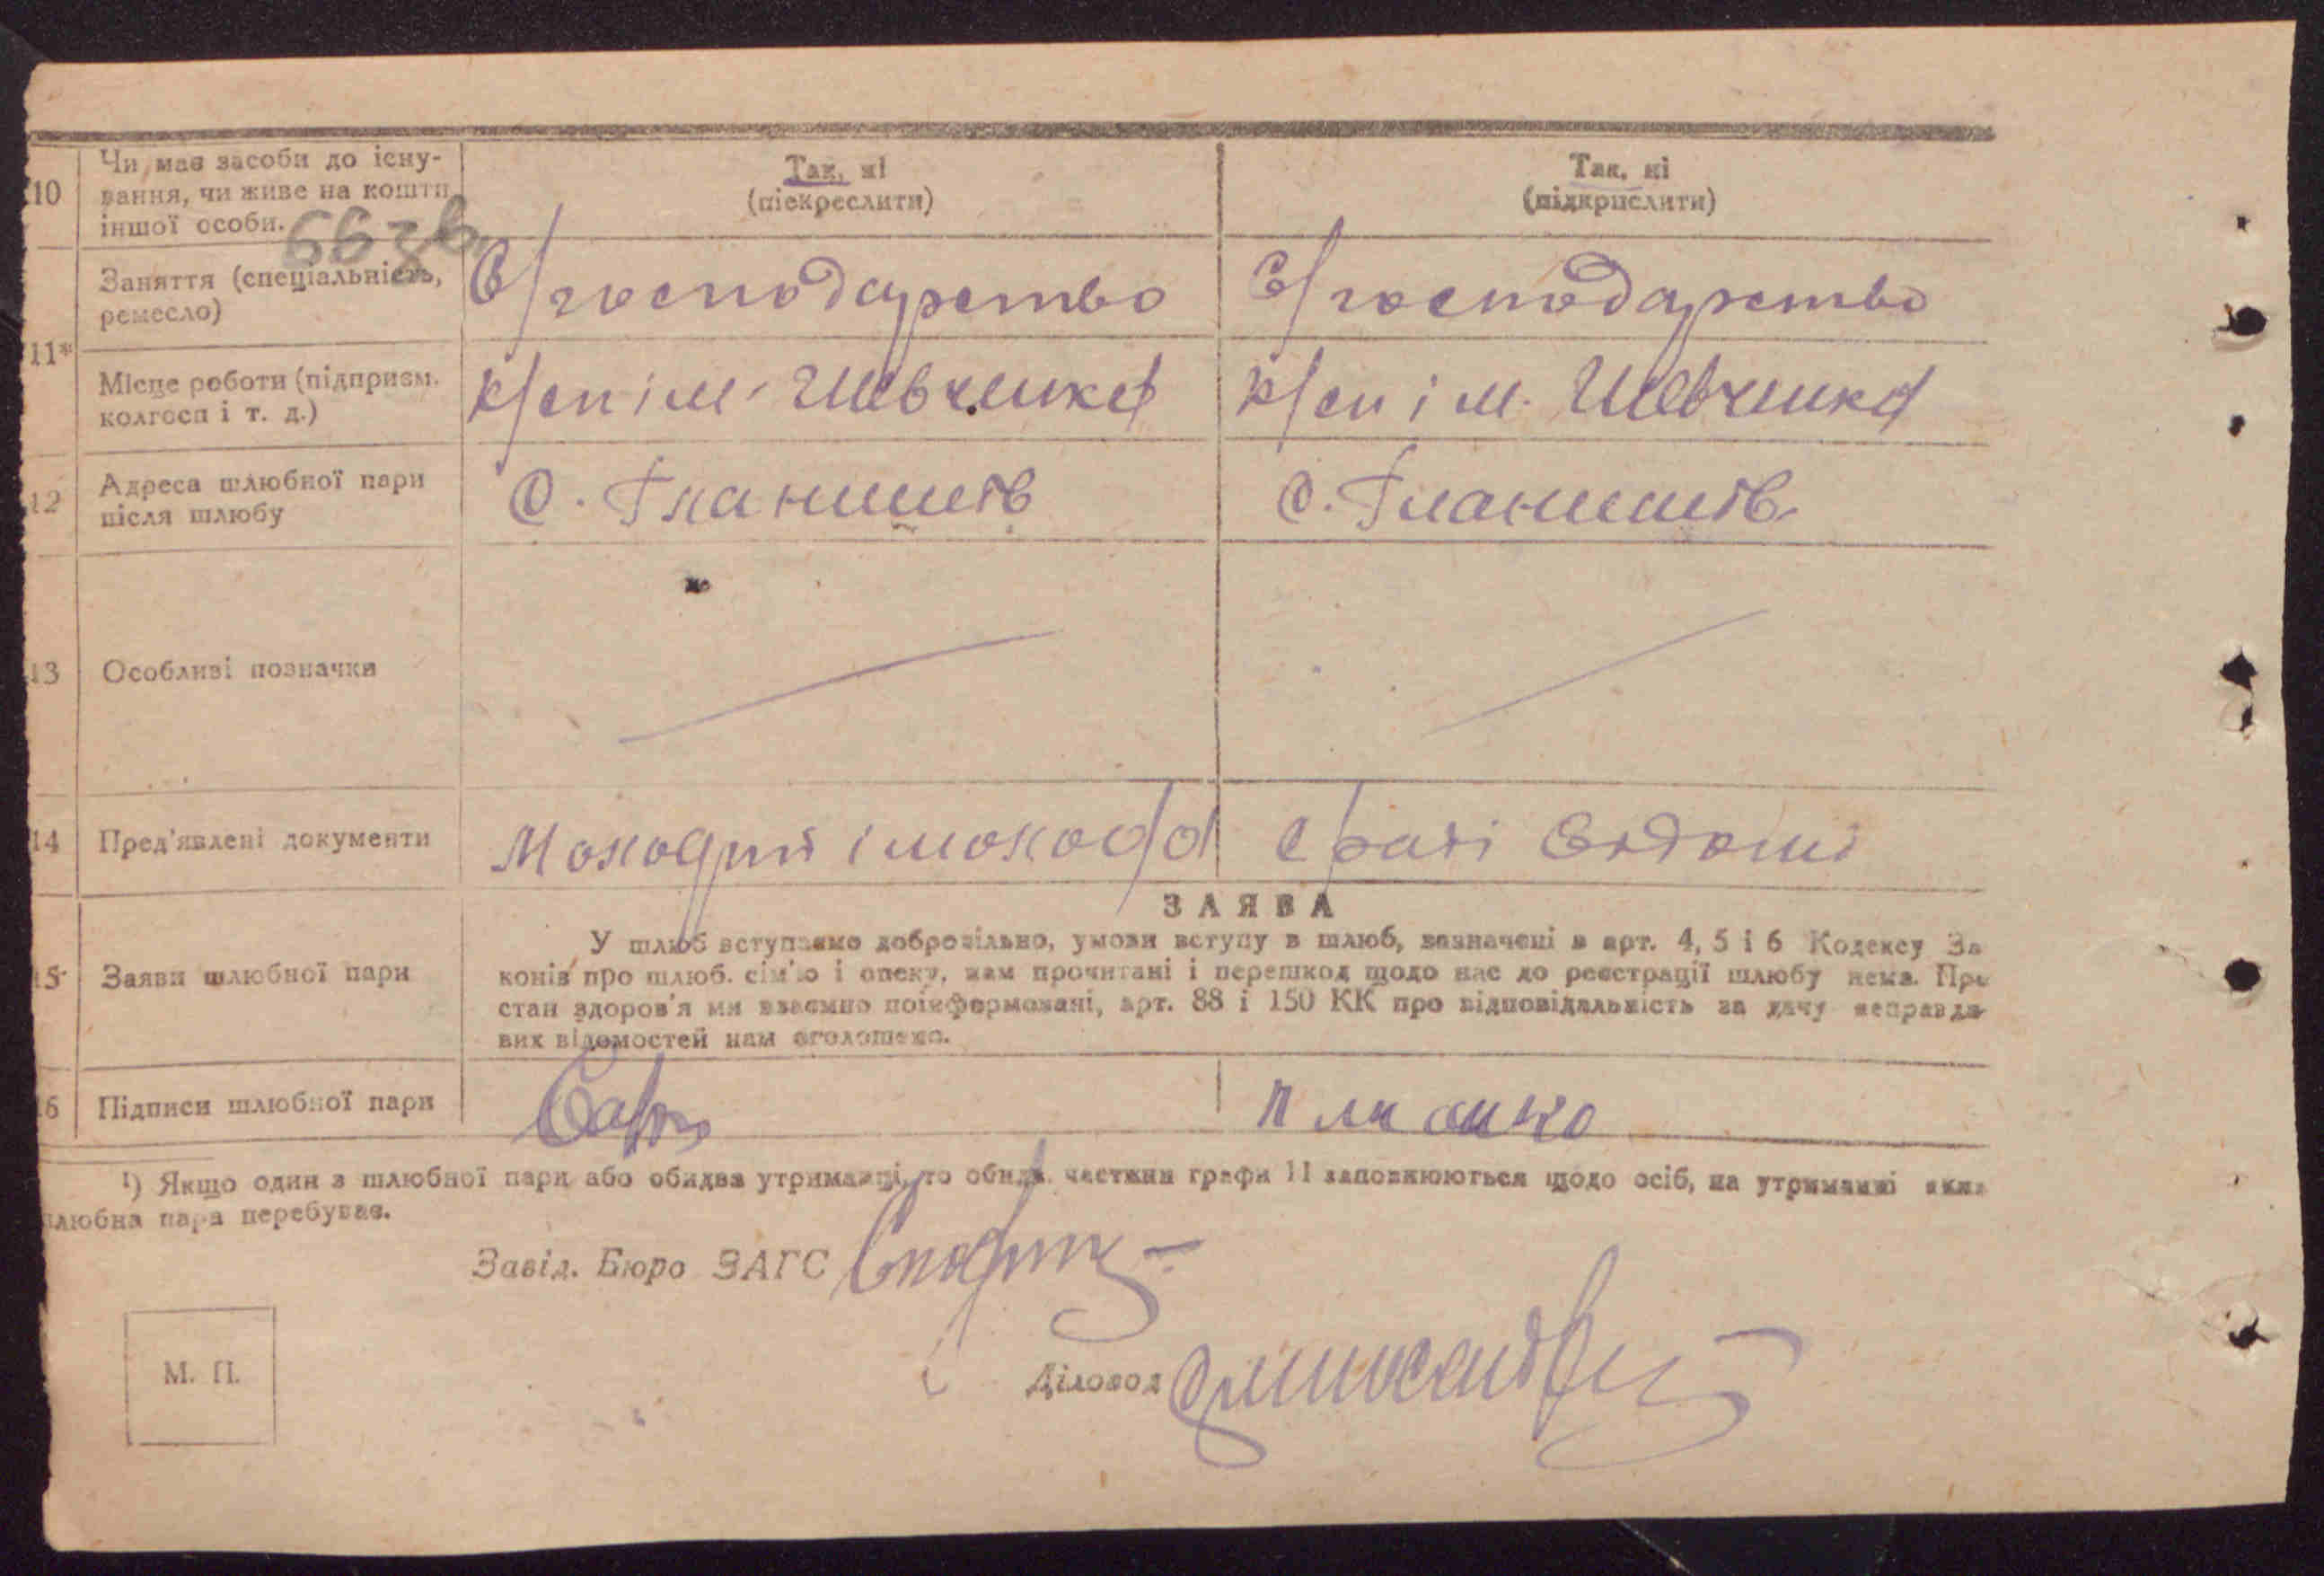 10 Чи має засоби до існу- Так, ні Так, ні
вання, чи живе на кошти (піскреслити) (підкрислити)
іншої особи.
Заняття (спеціальність, С/господарство С/господарство
ремесло)
11*
Місце роботи (підприєм. к/сп ім. Шевченка к/сп ім. Шевченка
колгосп і т. д.)
12 Адреса шлюбної пари с. Гланишів с. Гланишів
після шлюбу
13 Особливі позначки
14 Пред'явлені документи Молодий і молода
ЗАЯВА
У шлюб вступаємо добровільно, умови вступу в шлюб, зазначені в арт. 4, 5 і 6 Кодексу За
15 Заяви шлюбної пари конів про шлюб. сім'ю і опеку, нам прочитані і перешкод щодо нас до реєстрації шлюбу нема. Про
стан здоров'я ми взаємно поінформовані, арт. 88 і 150 КК про відповідальність за дачу неправди-
вих відомостей нам оголошено.
16 Підписи шлюбної пари
¹) Якщо один з шлюбної пари або обидва утриманці, то обидві частини графи 11 заповнюються щодо осіб, на утриманні яких
шлюбна пара перебуває.
Завід. Бюро ЗАГС
Діловод
М. П.